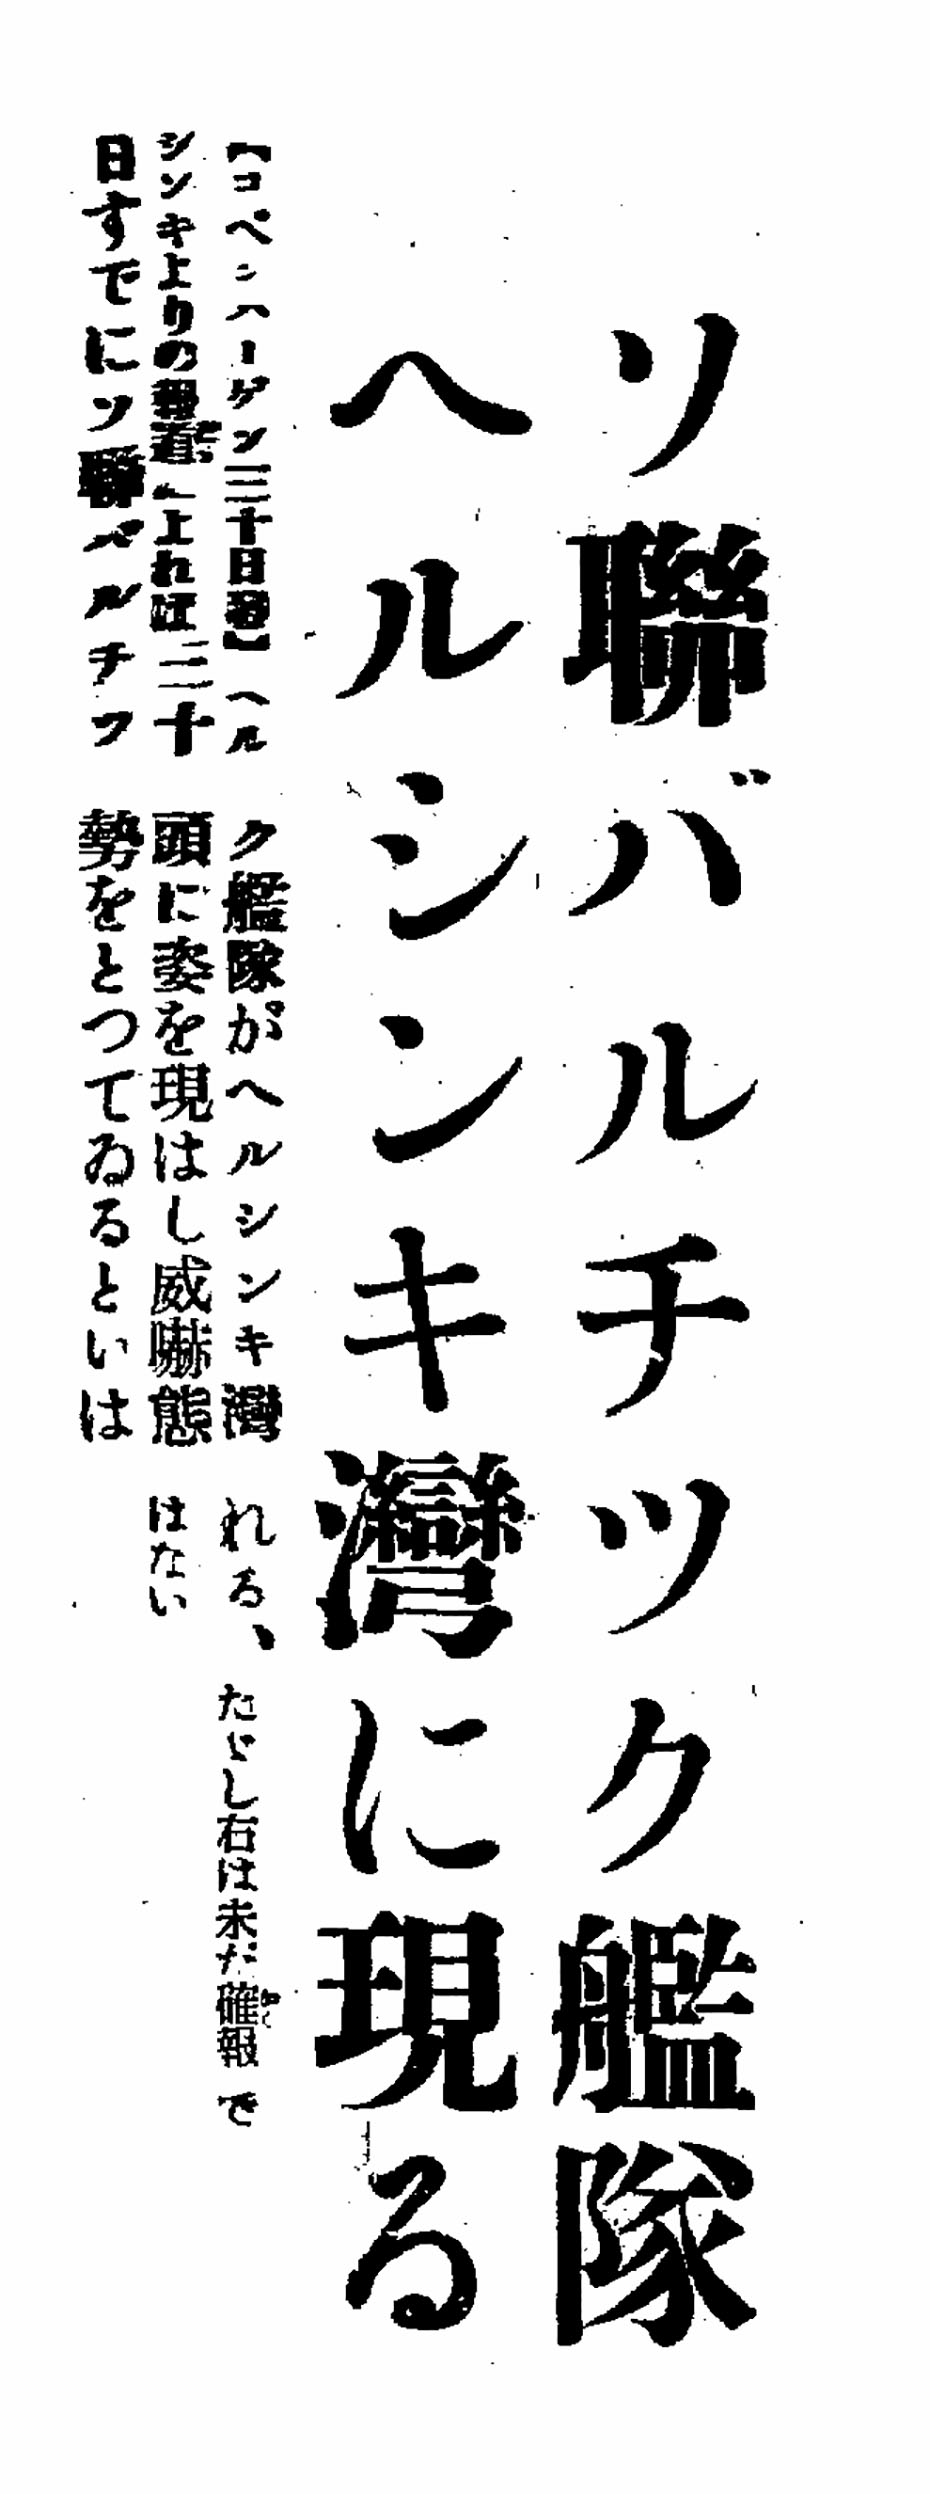 ソ聯バルチツク艦隊
ヘルシンキ灣に現る
【コペンハーゲン三十日同盟】ヘル
シンキよりの よれば三十
日すでにソ聯バルチツ
ク艦隊がヘルシンキ灣
頭に姿を現はし威嚇態
勢をとつてゐるといは
れる、たゞし右は未だ確報で
はない